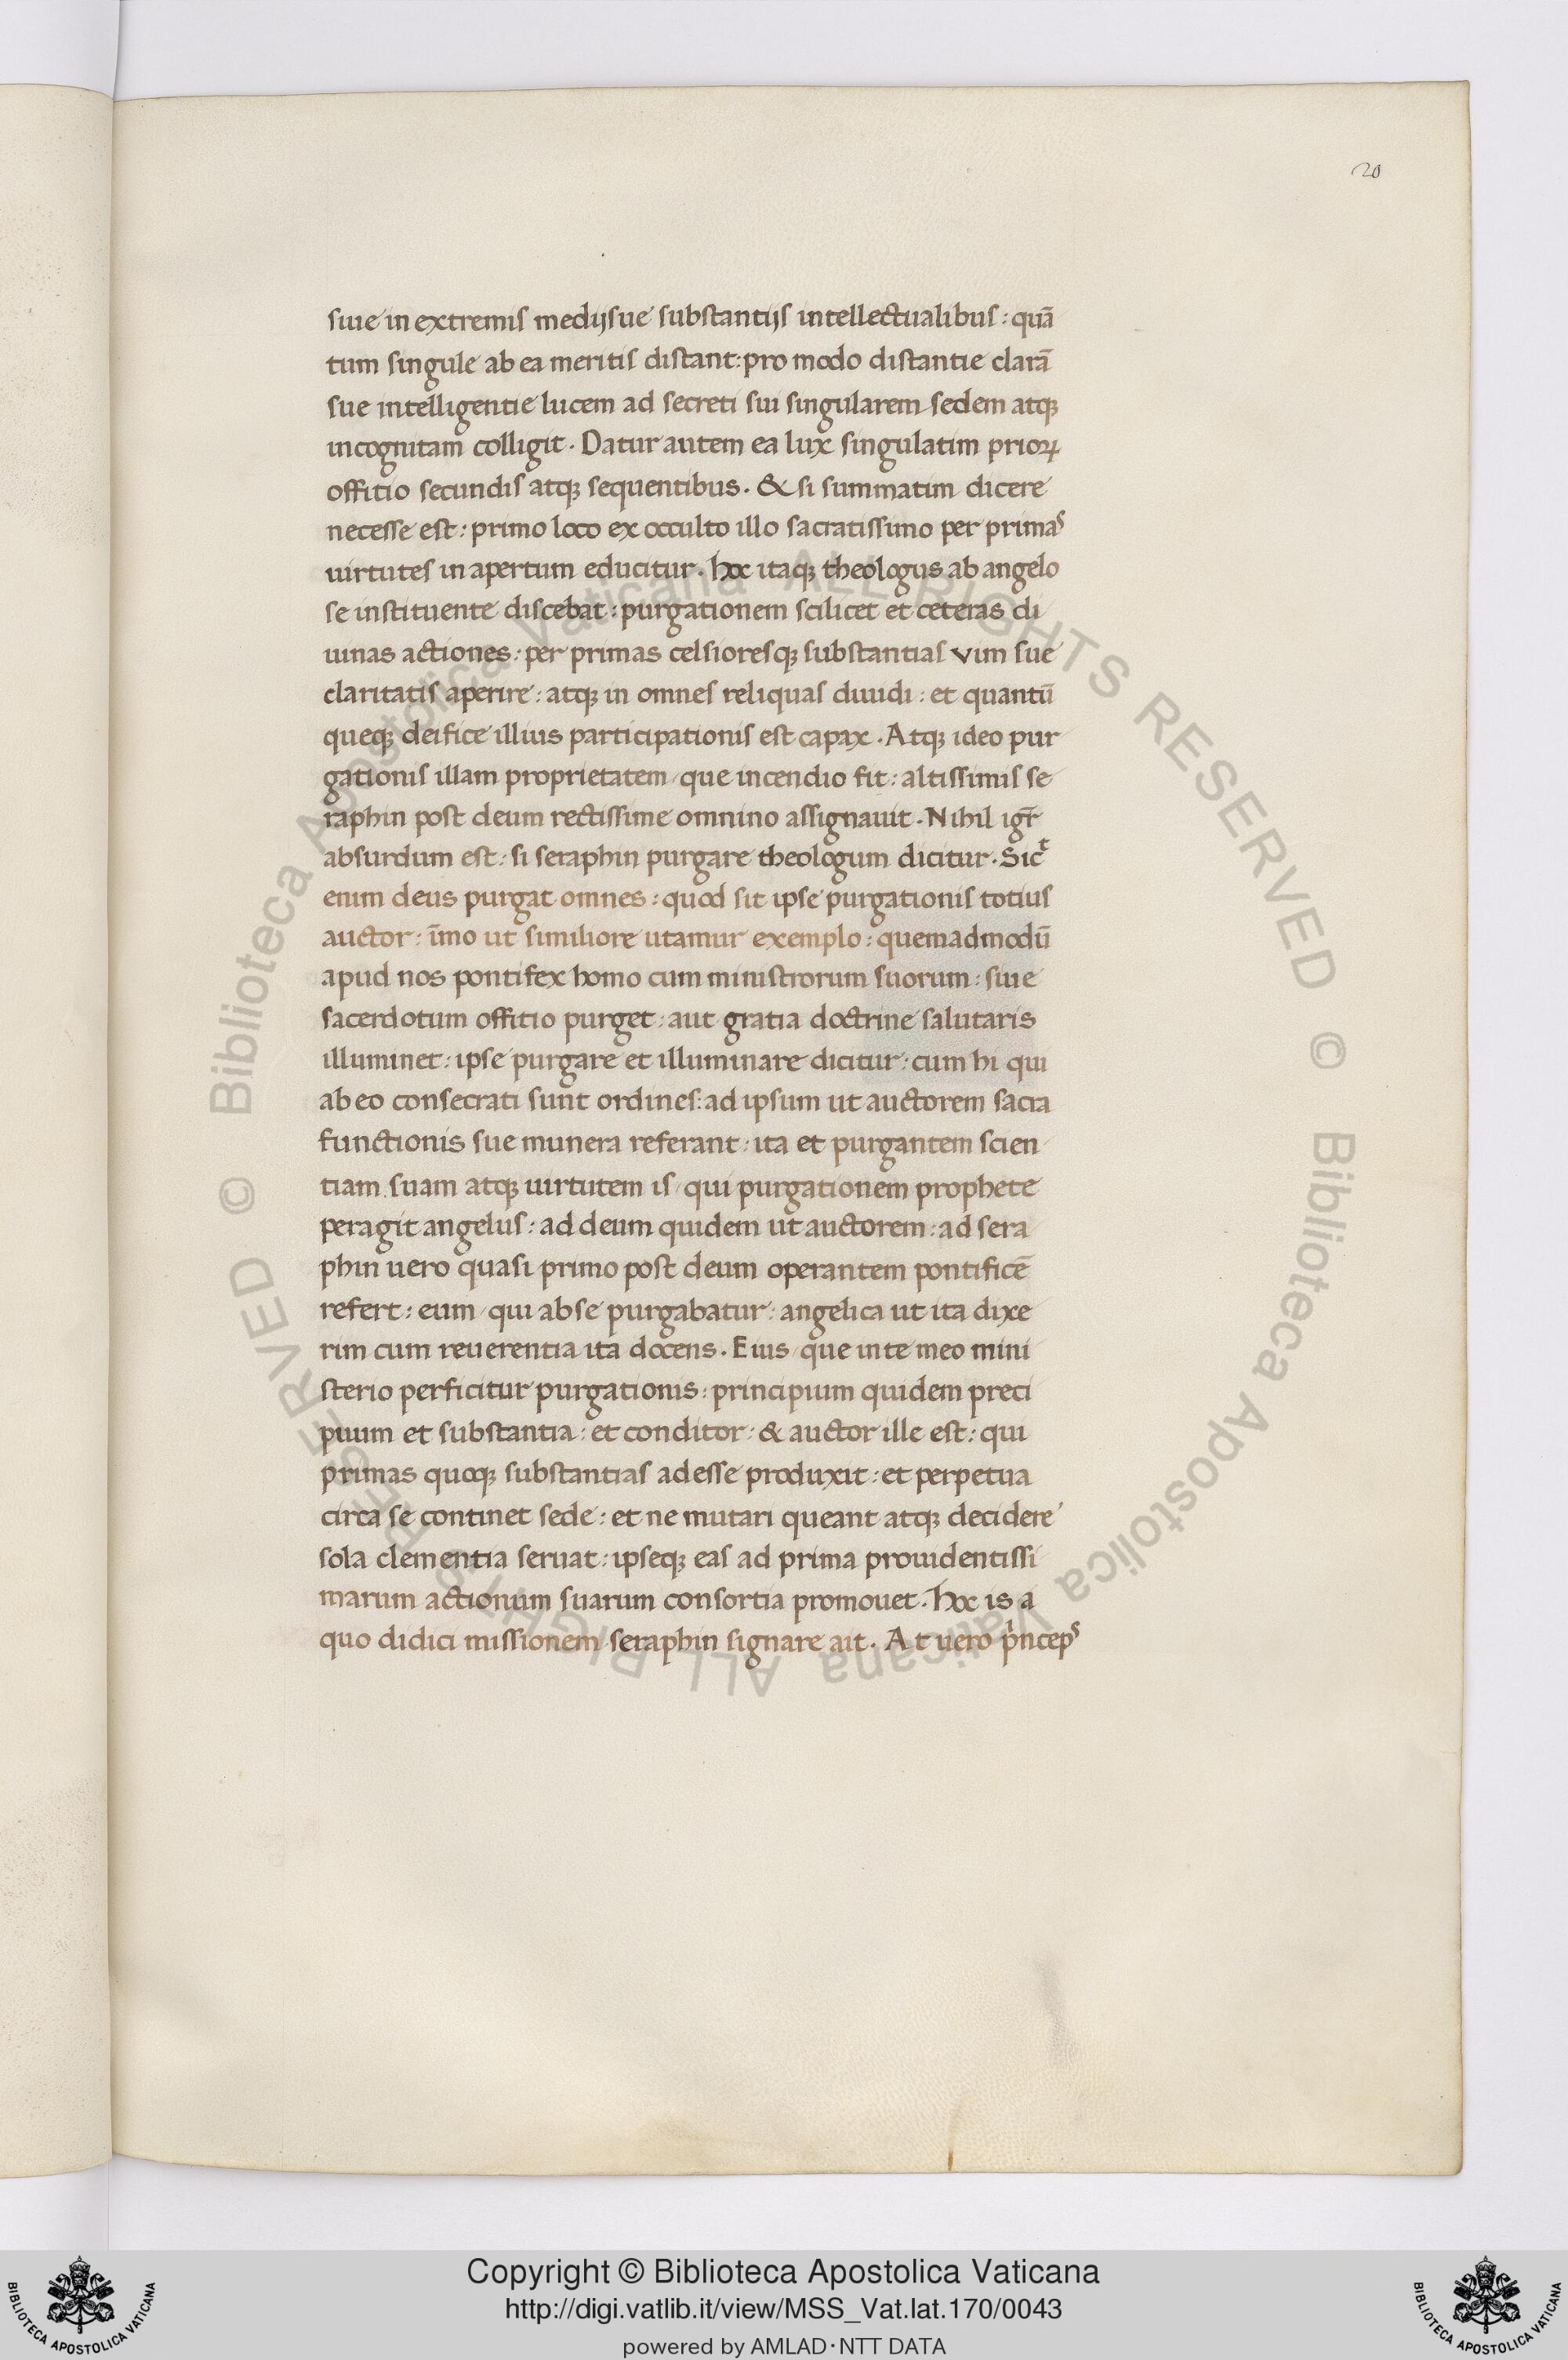 20
siue in extremis medijsue substantijs intellectualibus : quā
tum singule ab ea meritis distant : pro modo distantie clarā
sue intelligentie lucem ad secreti sui singularem sedem atqꝫ
incognitam colligit . Datur autem ea lux singulatim prioꝝ
offitio secundis atqꝫ sequentibus . & si summatim dicere
necesse est : primo loco ex occulto illo sacratissimo per primas
uirtutes in apertum educitur . hoc itaqꝫ theologus ab angelo
se instituente discebat : purgationem scilicet et ceteras di
uinas actiones : per primas celsioresqꝫ substantias vim sue
claritatis aperire : atqꝫ in omnes reliquas diuidi : et quantū
queqꝫ deifice illius participationis est capax . Atqꝫ ideo pur
gationis illam proprietatem / que incendio fit : altissimis se
raphin post deum rectissime omnino assignauit . Nihil igr̄
absurdum est : si seraphin purgare theologum dicitur . Sict
enim deus purgat omnes : quod sit ipse purgationis totius
auctor : īmo ut similiore utamur exemplo : quemadmodū
apud nos pontifex homo cum ministrorum suorum : siue
sacerdotum offitio purget : aut gratia doctrine salutaris
illuminet : ipse purgare et illuminare dicitur : cum hi qui
ab eo consecrati sunt ordines : ad ipsum ut auctorem sacra
functionis sue munera referant : ita et purgantem scien
tiam suam atqꝫ uirtutem is / qui purgationem prophete
peragit angelus : ad deum quidem ut auctorem : ad sera
phin uero quasi primo post deum operantem pontificē
refert : eum / qui ab se purgabatur : angelica ut ita dixe
rim cum reuerentia ita docens . Eius / que in te meo mini
sterio perficitur purgationis : principium quidem preci
puum et substantia : et conditor : & auctor ille est : qui
primas quoqꝫ substantias ad esse produxit : et perpetua
circa se continet sede : et ne mutari queant atqꝫ decidere
sola clementia seruat : ipseqꝫ eas ad prima prouidentissi
marum actionum suarum consortia promouet . Hoc is a
quo didici missionem seraphin signare ait . At uero pͥnceps
© Biblioteca Apostolica Vaticana ALL RIGHTS RESERVED © Biblioteca Apostolica Vaticana ALL RIGHTS RESERVED
Copyright © Biblioteca Apostolica Vaticana
http://digi.vatlib.it/view/MSS_Vat.lat.170/0043
powered by AMLAD·NTT DATA
BIBLIOTECA APOSTOLICA VATICANA
BIBLIOTECA APOSTOLICA VATICANA